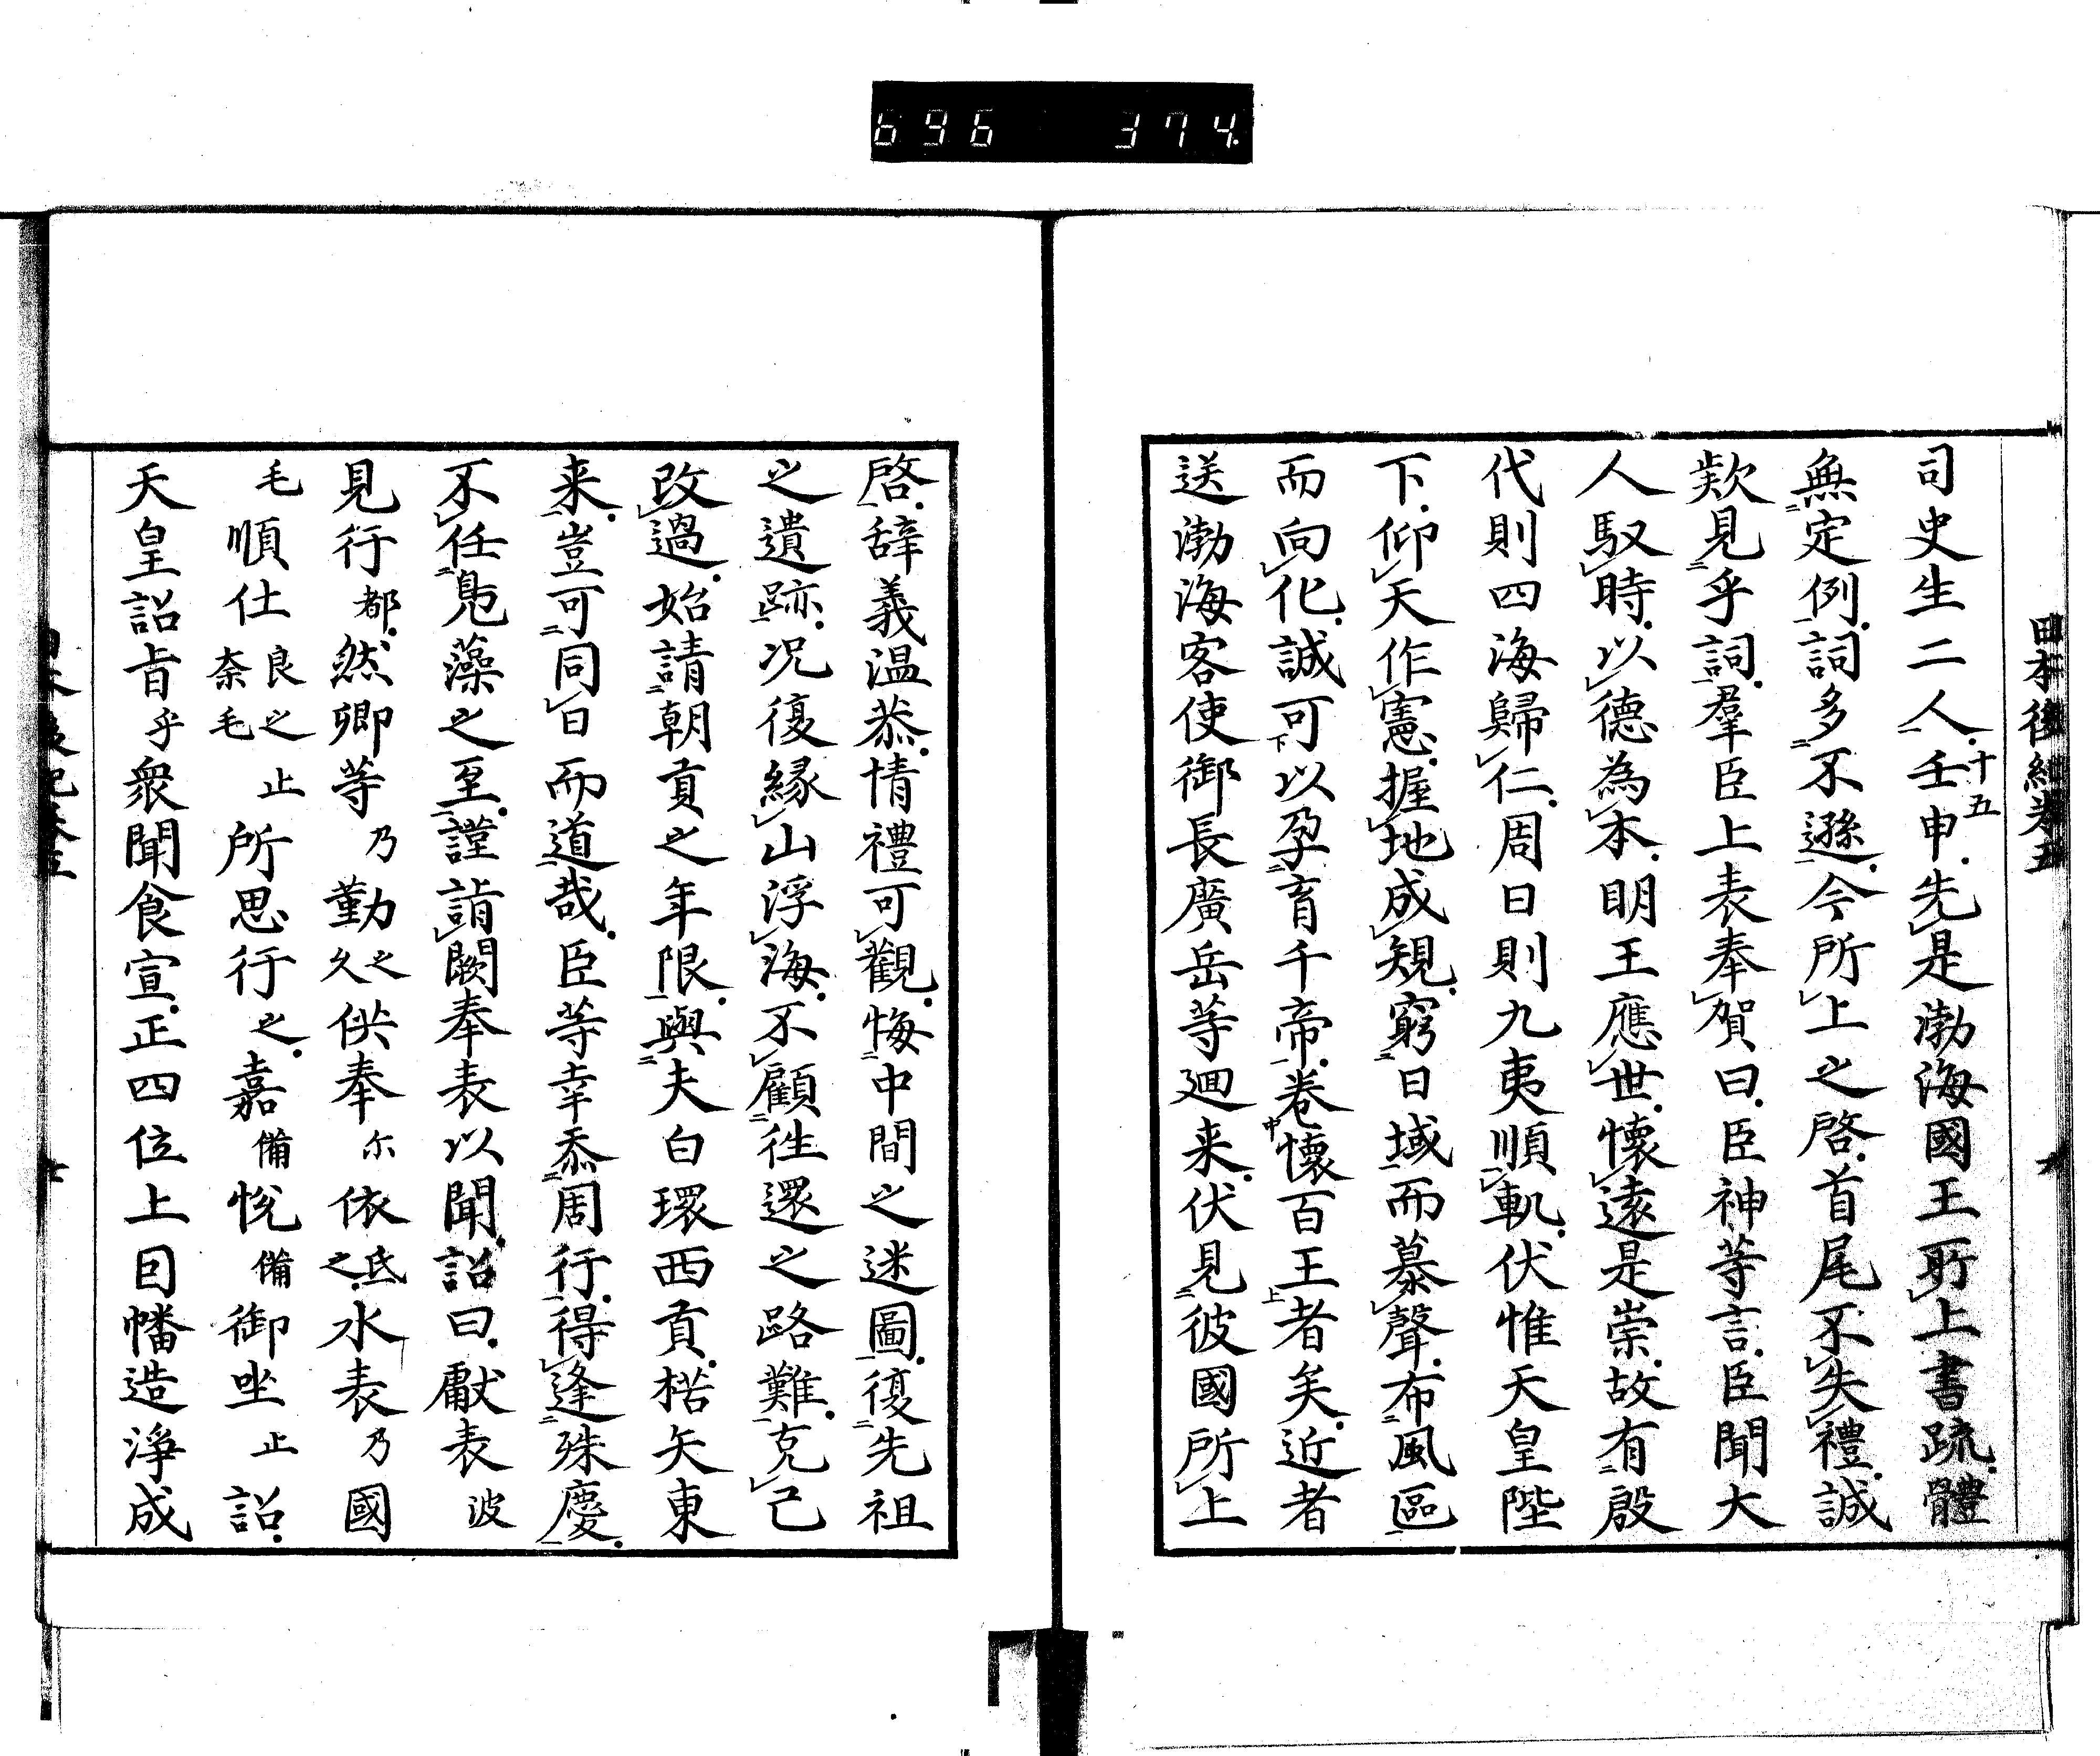 696 374
日本後紀卷五
司史生二人壬申十五先是渤海國王所上書疏體
無定例詞多不遜今所上之啓首尾不失禮誠
欵見乎詞羣臣上表奉賀曰臣神等言臣聞大
人馭時以德為本明王應世懷遠是崇故有殷
代則四海歸仁周日則九夷順軌伏惟天皇陛
下仰天作憲握地成規窮日域而慕聲布風區
而向化誠可以孕育千帝卷懷百王者矣近者
送渤海客使御長廣岳等廻来伏見彼國所上
啓辞義温恭情禮可觀悔中間之迷圖復先祖
之遺跡况復緣山浮海不顧徃還之路難克己
改過始請朝貢之年限與夫白環西貢楛矢東
来豈可同日而道哉臣等幸忝周行得逢殊慶
不任鳬藻之至謹詣闕奉表以聞詔曰獻表波
見行都然卿等乃勤之久供奉尓依氐之水表乃國
毛順仕良之奈毛止所思行之嘉備悅備御坐止詔
天皇詔旨乎衆聞食宣正四位上因幡造淨成